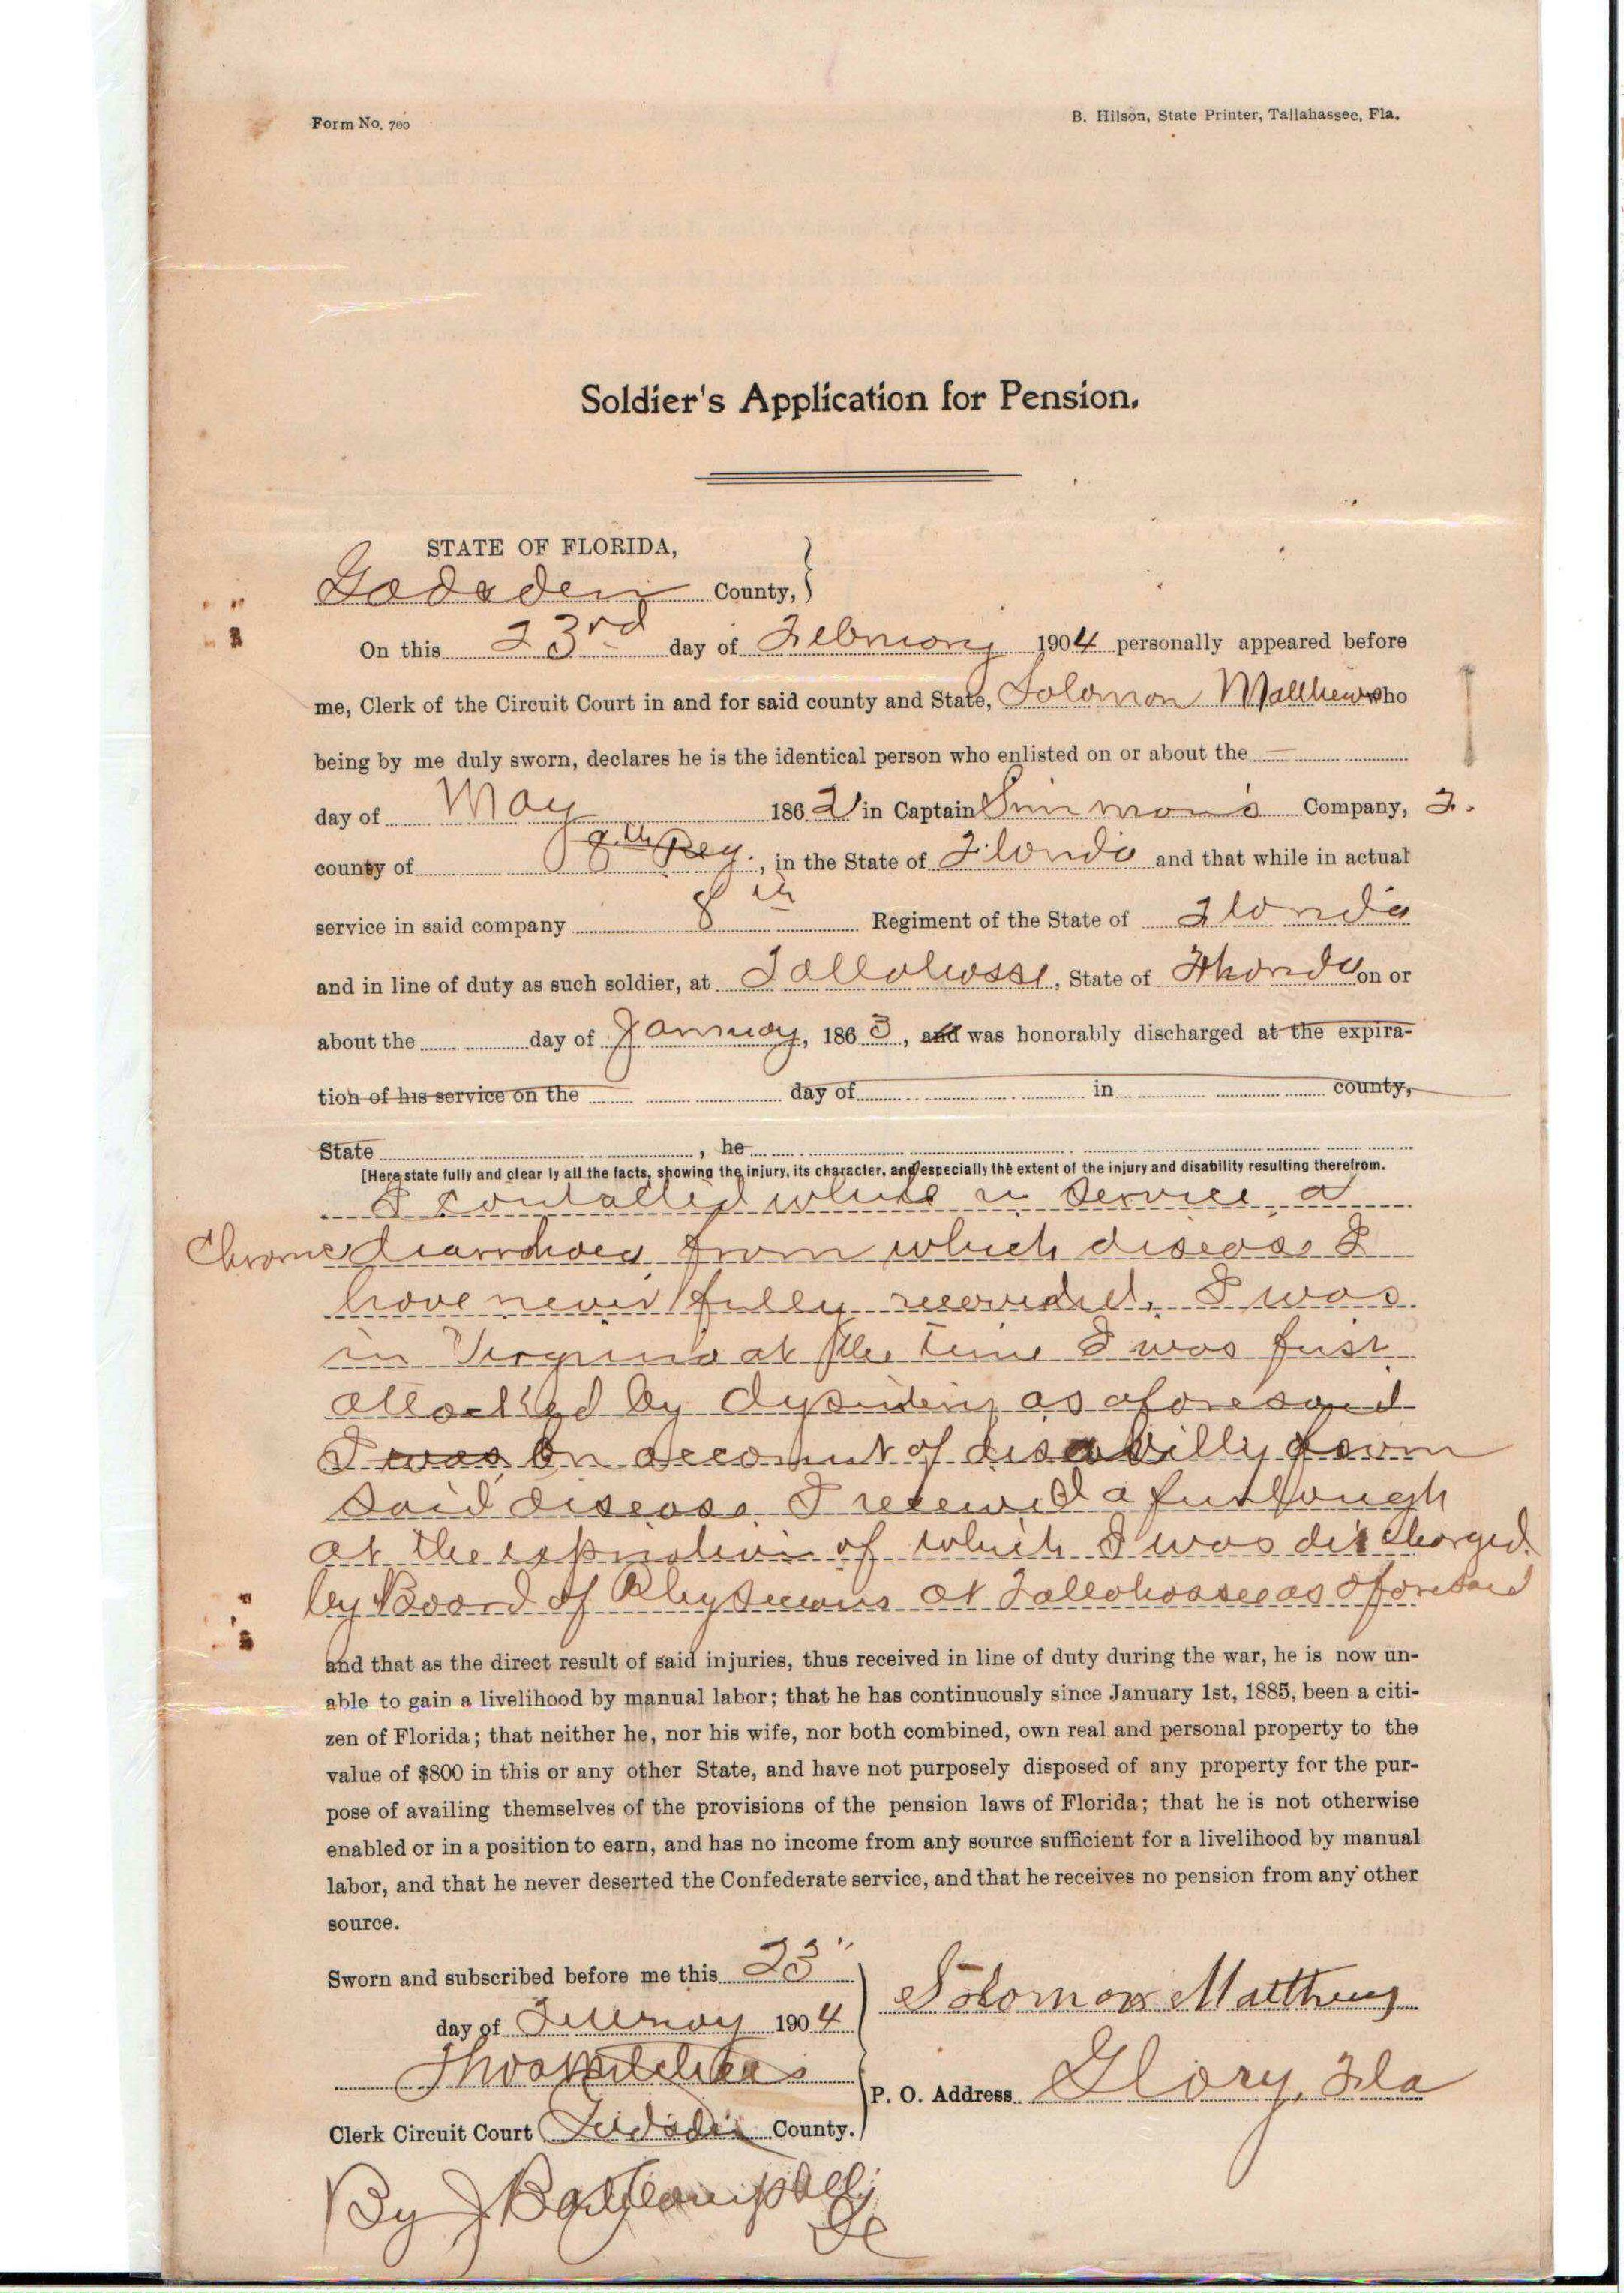 Form No. 700
B. Hilson, State Printer, Tallahassee, Fla.
Soldier's Application for Pension.
STATE OF FLORIDA,
Gadsden County,
On this 23rd day of February 1904 personally appeared before
me, Clerk of the Circuit Court in and for said county and State, Solomon Matthews who
being by me duly sworn, declares he is the identical person who enlisted on or about the
day of May 1862 in Captain Simmons Company, F.
county of 8th Reg., in the State of Florida and that while in actual
service in said company 8th Regiment of the State of Florida
and in line of duty as such soldier, at Tallahasse, State of Florida on or
about the day of January, 1863, and was honorably discharged at the expira-
tion of his service on the day of in county,
State , he
[Here state fully and clear ly all the facts, showing the injury, its character, and especially the extent of the injury and disability resulting therefrom.
I contalled while in service a
Chronic diarrhoea from which disease I
have never fully recovered. I was
in Virginia at the time I was first
attacked by dysentery as aforesaid
I was On account of disability from
said disease I received a furlough
at the expiration of which I was discharged
by Board of Physicians at Tallahassee as aforesaid
and that as the direct result of said injuries, thus received in line of duty during the war, he is now un-
able to gain a livelihood by manual labor; that he has continuously since January 1st, 1885, been a citi-
zen of Florida; that neither he, nor his wife, nor both combined, own real and personal property to the
value of $800 in this or any other State, and have not purposely disposed of any property for the pur-
pose of availing themselves of the provisions of the pension laws of Florida; that he is not otherwise
enabled or in a position to earn, and has no income from any source sufficient for a livelihood by manual
labor, and that he never deserted the Confederate service, and that he receives no pension from any other
source.
Sworn and subscribed before me this 23"
day of February 1904
Solomon Matthews
P. O. Address Glory, Fla
Clerk Circuit Court Gadsden County.
By
DC